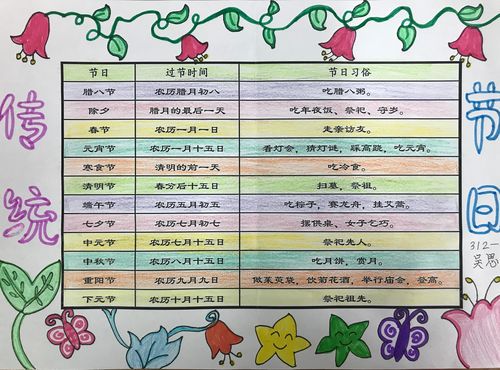 传统
节日
节日 过节时间 节日习俗
腊八节 农历腊月初八 吃腊八粥。
除夕 腊月的最后一天 吃年夜饭、祭祀、守岁。
春节 农历一月一日 走亲访友。
元宵节 农历一月十五日 看灯会，猜灯谜，踩高跷，吃元宵。
寒食节 清明的前一天 吃冷食。
清明节 春分后十五日 扫墓，祭祖。
端午节 农历五月初五 吃粽子，赛龙舟，挂艾蒿。
七夕节 农历七月初七 摆供桌、女子乞巧。
中元节 农历七月十五日 祭祀先人。
中秋节 农历八月十五日 吃月饼，赏月。
重阳节 农历九月九日 做茱萸袋，饮菊花酒，举行庙会，登高。
下元节 农历十月十五日 祭祀祖先。
312一
吴思